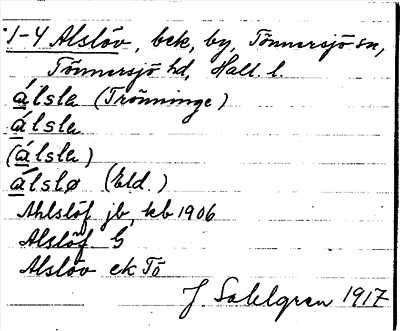 1-4 Alslöv, bek, by, Tönnersjö sn,
Tönnersjö hd, Hall. l.
álslа (Trönninge)
álslа
(álslа)
álslø (Eld.)
Ahlslöf jb, kb 1906
Alslöf G
Alslöv ek Tö
J. Sahlgren 1917